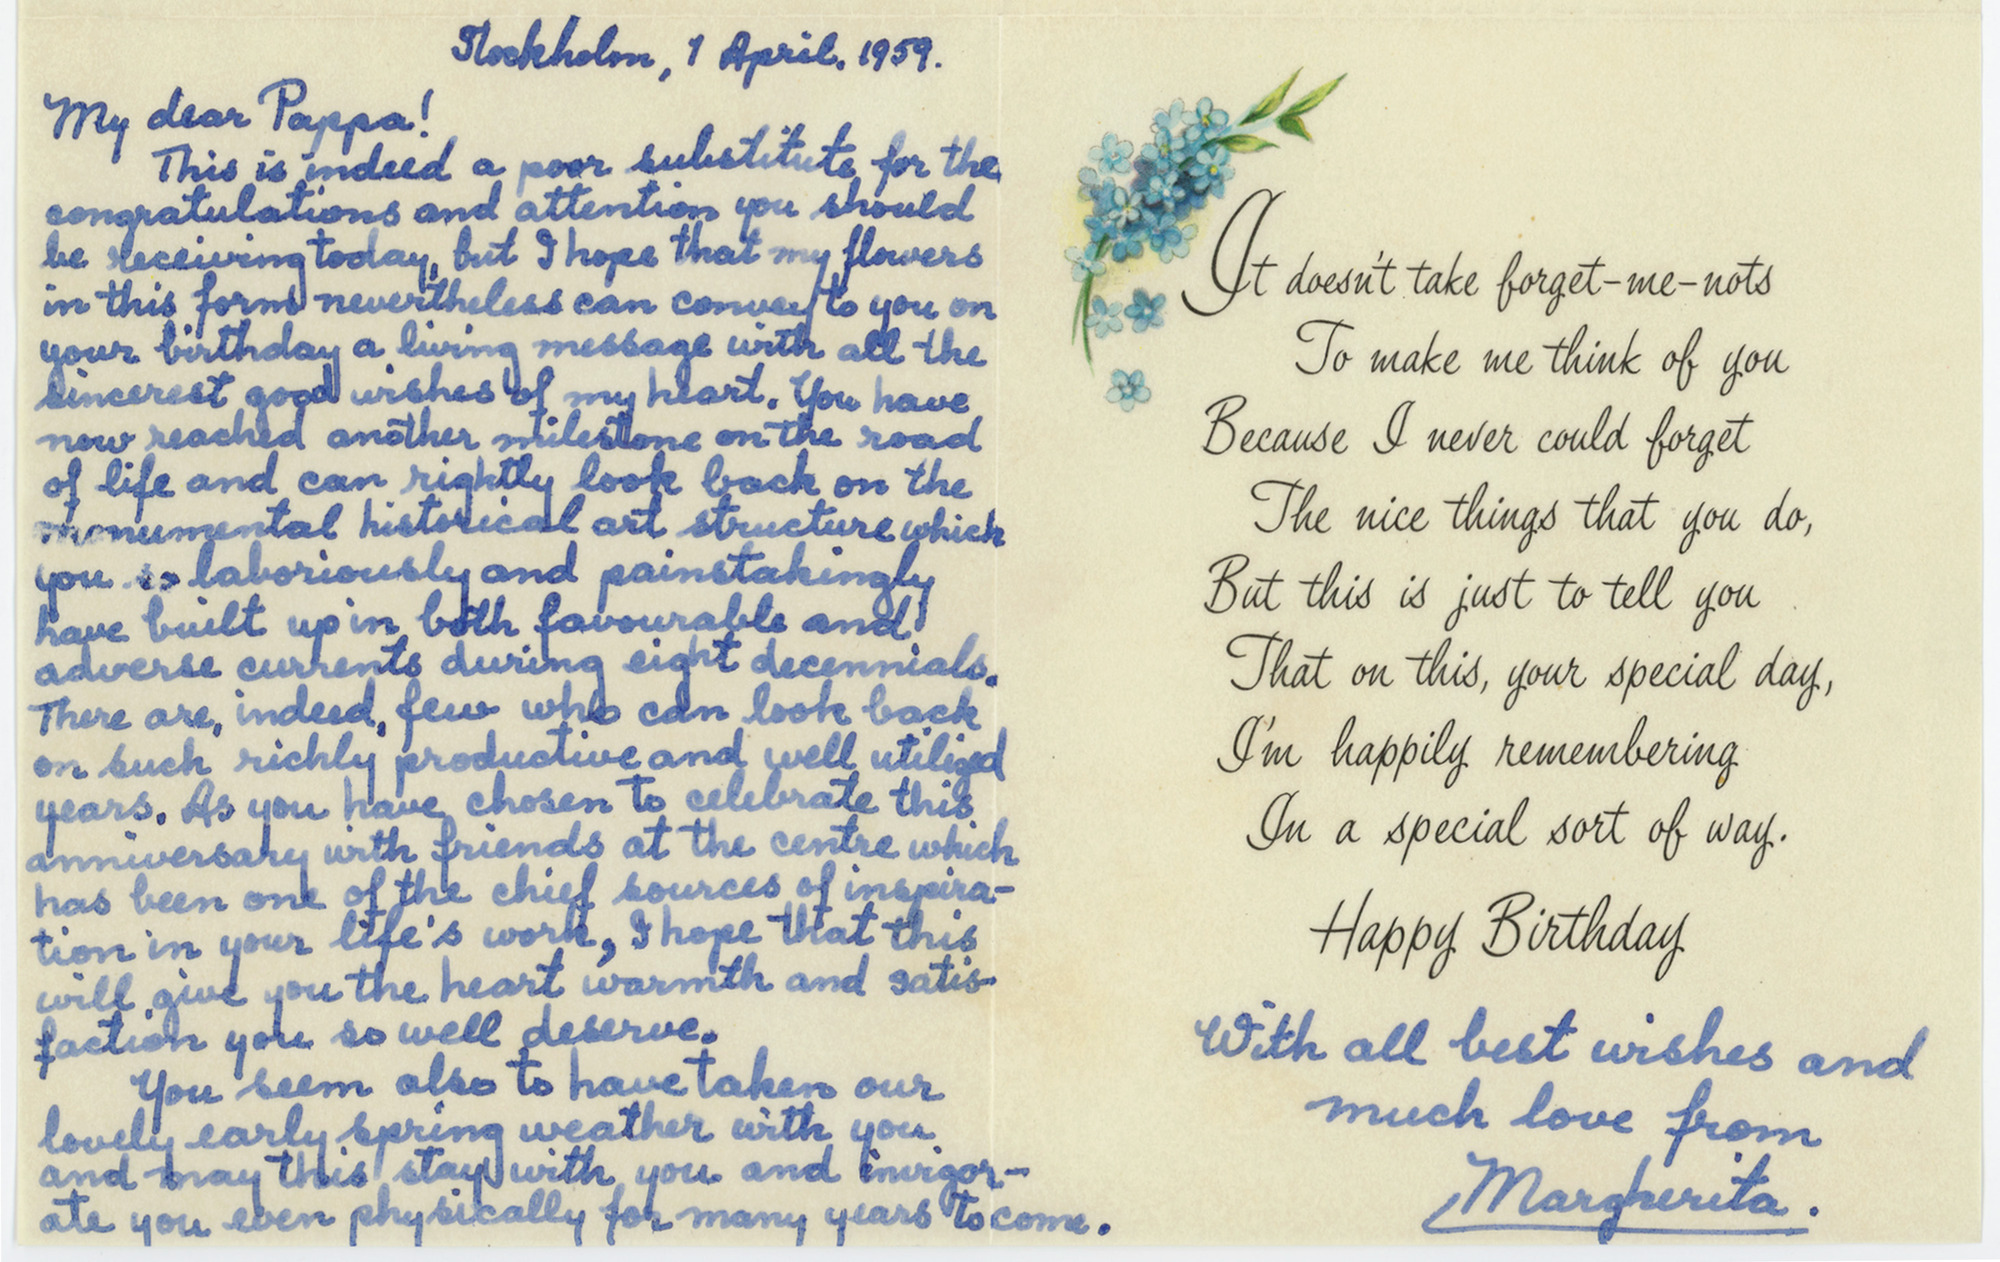 Stockholm, 1 April. 1959.
My dear Pappa!
This is indeed a poor substitute for the
congratulations and attention you should
be receiving today, but I hope that my flowers
in this form nevertheless can convey to you on
your birthday a living message with all the
sincerest good wishes of my heart. You have
now reached another milestone on the road
of life and can rightly look back on the
monumental historical art structure which
you so laboriously and painstakingly
have built up in both favourable and
adverse currents during eight decennials.
There are, indeed, few who can look back
on such richly productive and well utilized
years. As you have chosen to celebrate this
anniversary with friends at the centre which
has been one of the chief sources of inspira-
tion in your life's work, I hope that this
will give you the heart warmth and satis-
faction you so well deserve.
You seem also to have taken our
lovely early spring weather with you
and may this stay with you and invigor-
ate you even physically for many years to come.
It doesn't take forget-me-nots
To make me think of you
Because I never could forget
The nice things that you do,
But this is just to tell you
That on this, your special day,
I'm happily remembering
In a special sort of way.
Happy Birthday
With all best wishes and
much love from
Margherita.